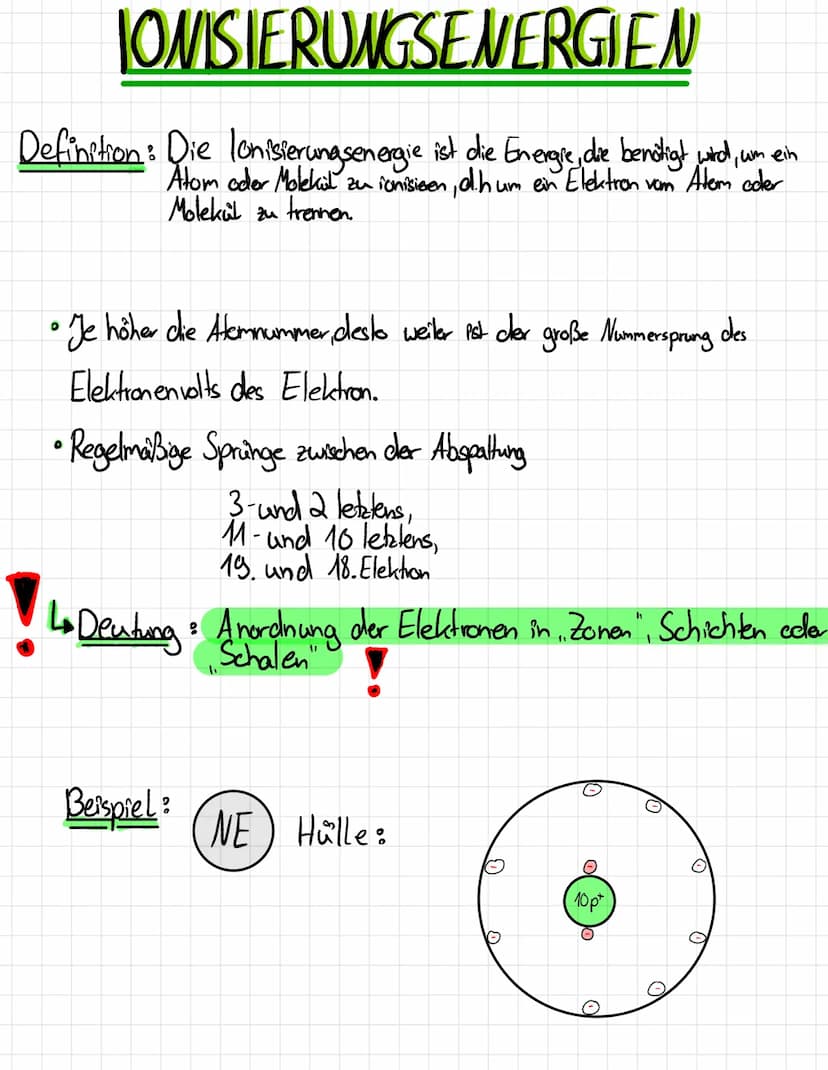 IONISIERUNGSENERGIEN
Definition: Die Ionisierungsenergie ist die Energie, die benötigt wird, um ein
Atom oder Molekül zu ionisieen, d.h um ein Elektron vom Atom oder
Molekül zu trennen.
• Je höher die Atomnummer, desto weiter ist der große Nummersprung des
Elektronenvolts des Elektron.
• Regelmäßige Sprünge zwischen der Abspaltung
3-und 2 letztens,
11-und 10 letztens,
19. und 18. Elektron
! ↳ Deutung: Anordnung der Elektronen in „Zonen", Schichten oder
„Schalen" !
Beispiel: NE Hülle:
-
-
-
-
-
10p+
-
-
-
-
-